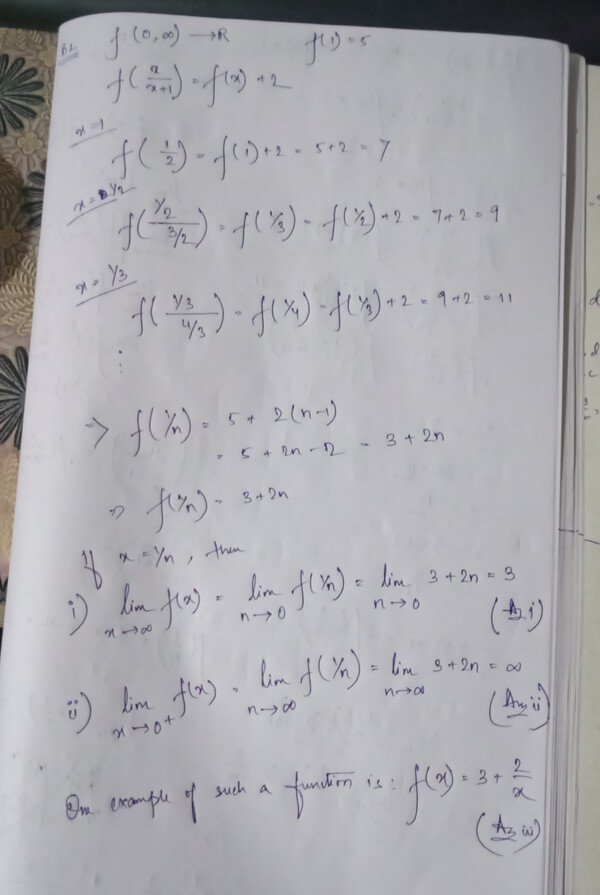 f: (0, ∞) → R f(1) = 5
f(x/x+1) = f(x) + 2
x = 1
f(1/2) = f(1) + 2 = 5 + 2 = 7
x = 1/2
f(1/2 / 3/2) = f(1/3) = f(1/2) + 2 = 7 + 2 = 9
x = 1/3
f(1/3 / 4/3) = f(1/4) = f(1/3) + 2 = 9 + 2 = 11
⋮
⇒ f(1/n) = 5 + 2(n-1)
= 5 + 2n - 2 = 3 + 2n
⇒ f(1/n) = 3 + 2n
If x = 1/n, then
i) lim x→∞ f(x) = lim n→0 f(1/n) = lim n→0 3 + 2n = 3
(Ans i)
ii) lim x→0+ f(x) = lim n→∞ f(1/n) = lim n→∞ 3 + 2n = ∞
(Ans ii)
One example of such a function is: f(x) = 3 + 2/x
(Ans iii)